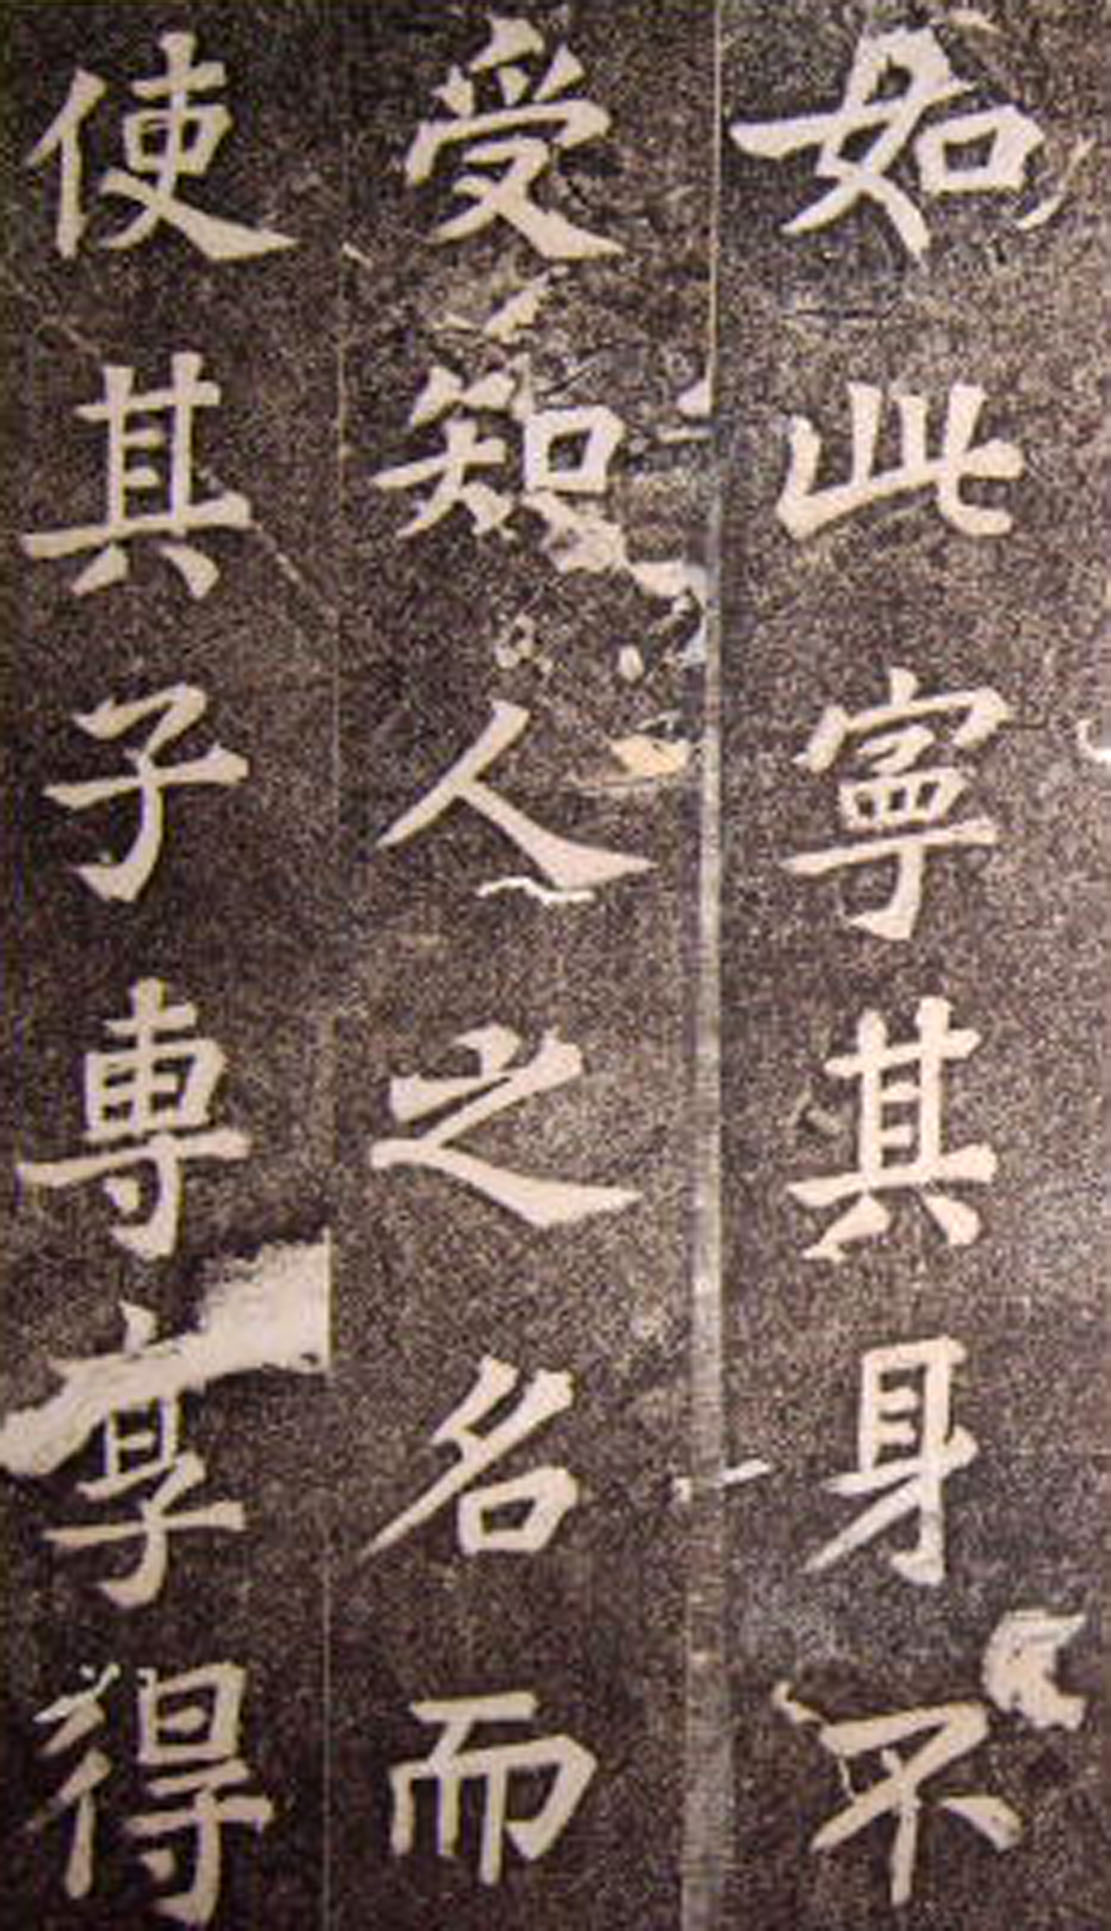 如此寧其身不
受知人之名而
使其子專享得